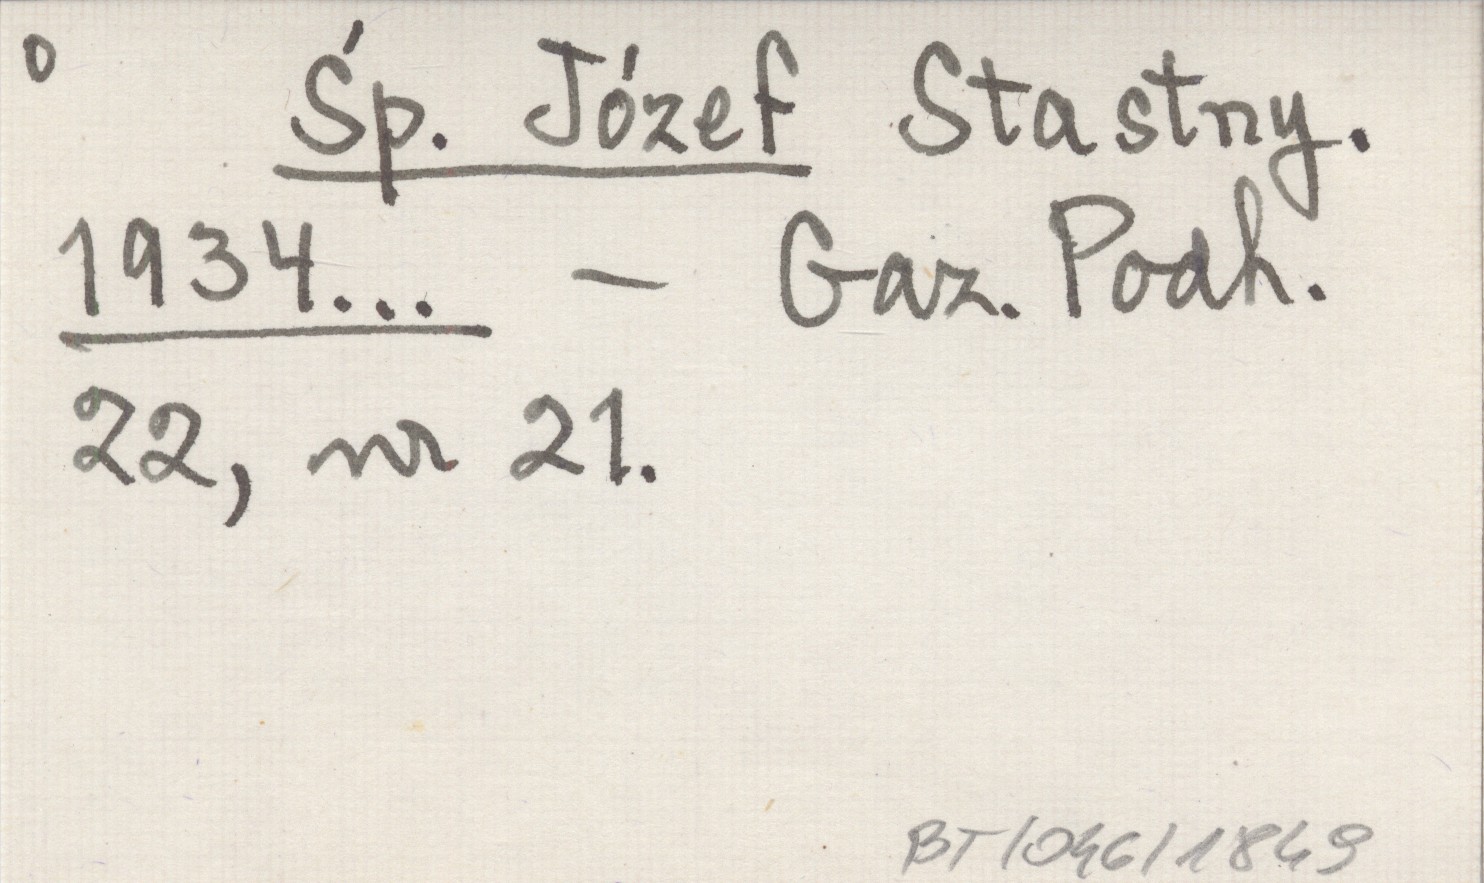 o
Śp. Józef Stastny.
1934... — Gaz. Podh.
22, nr 21.
BT/046/1849